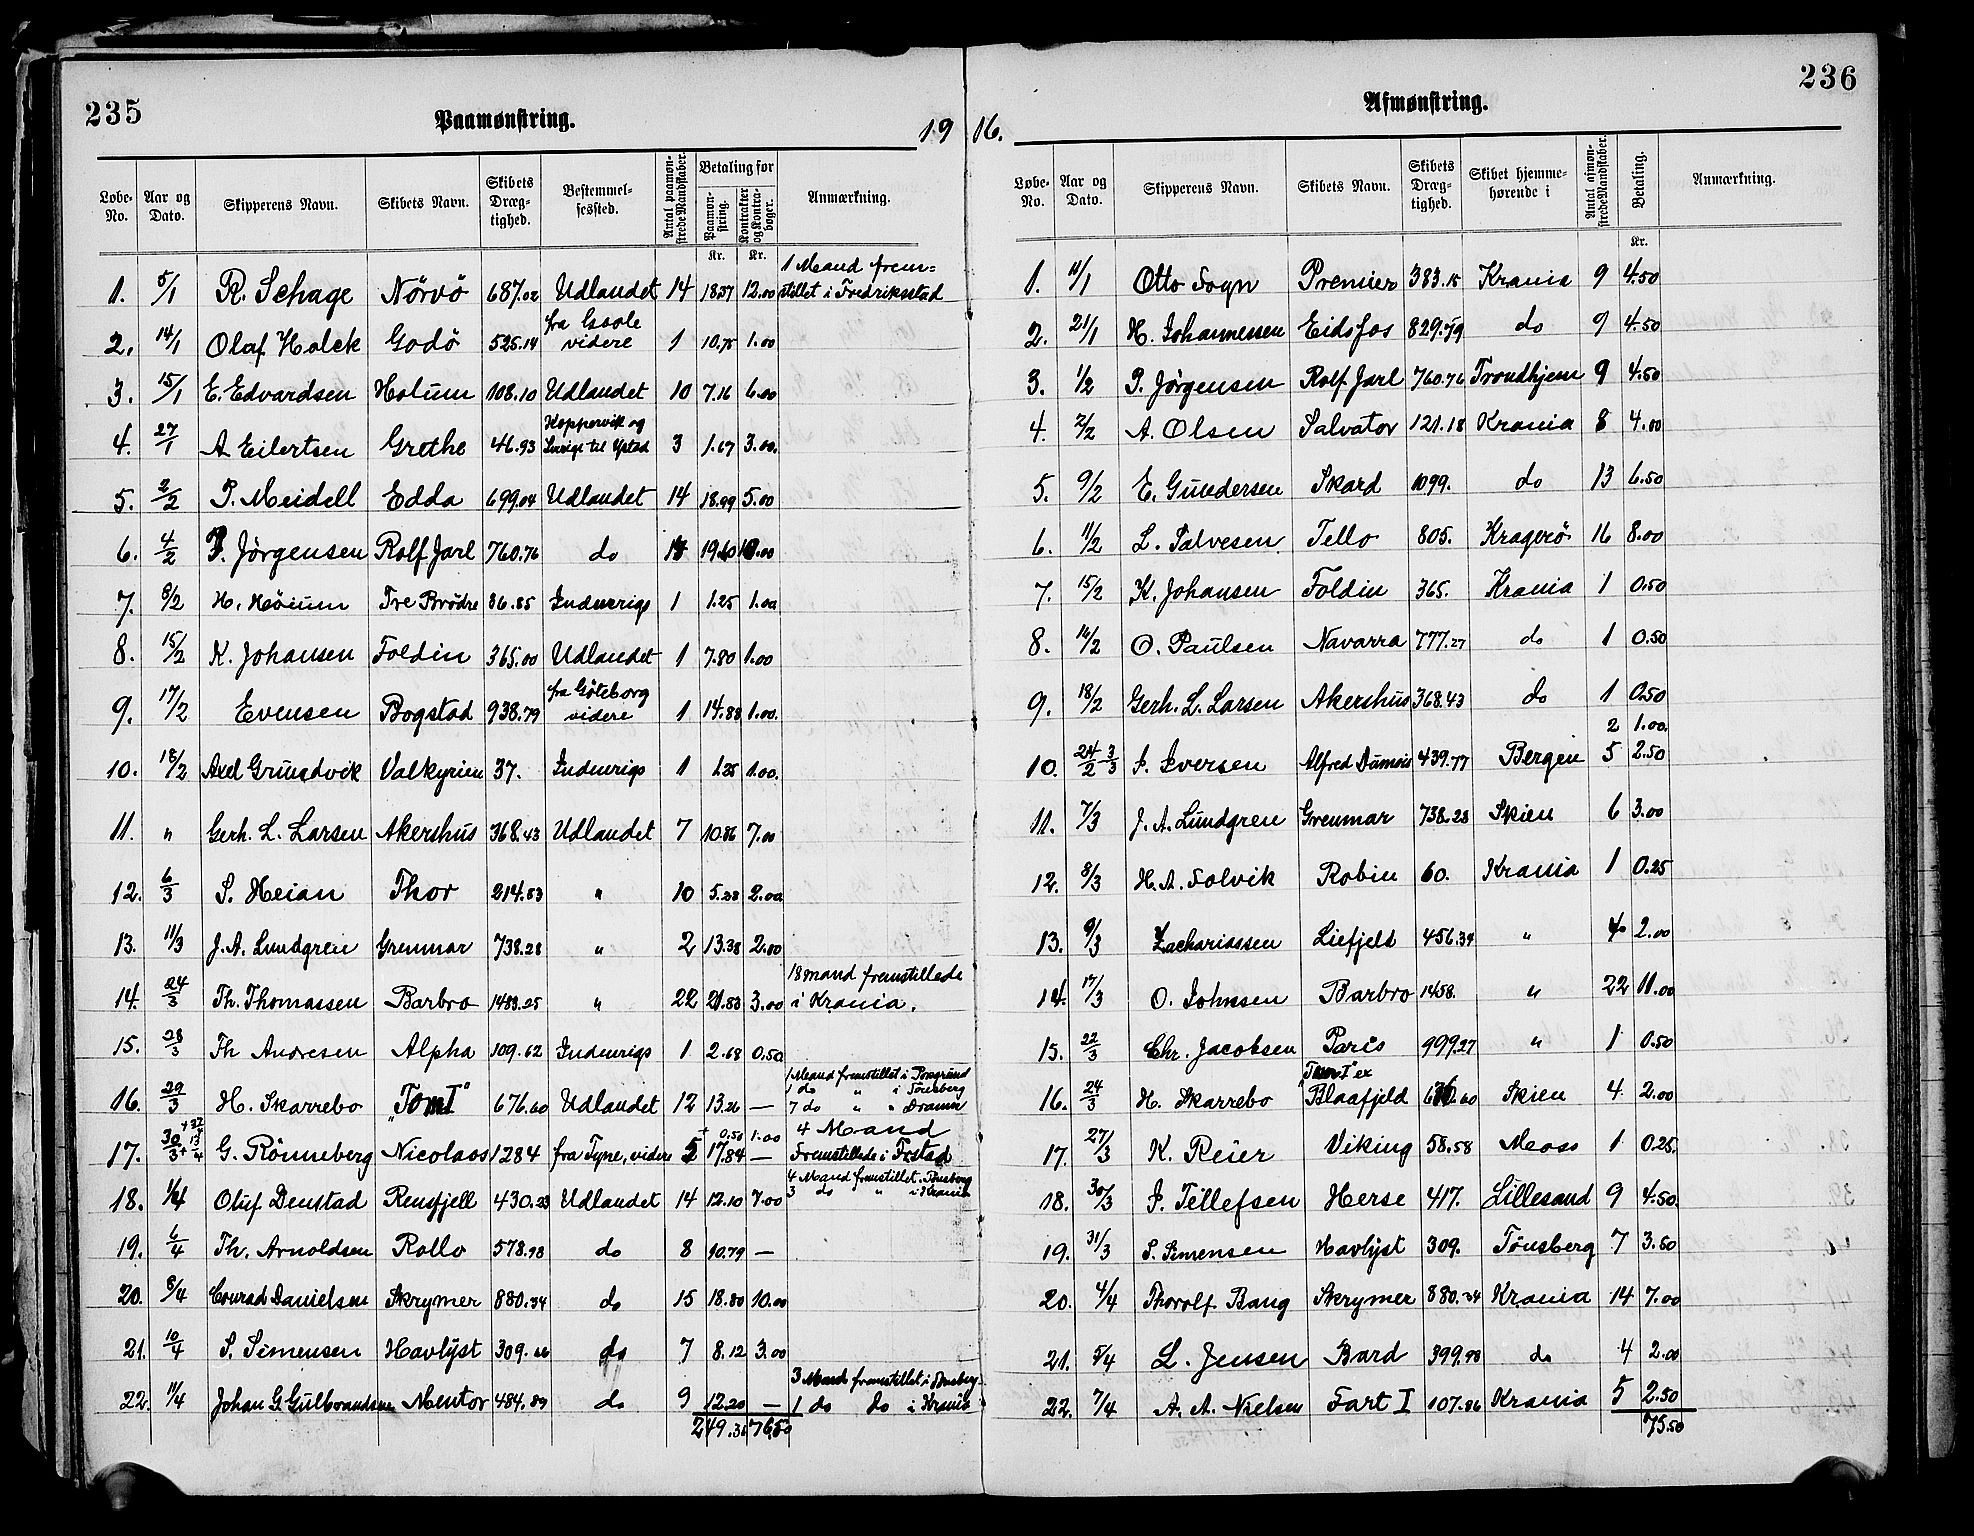 235
Paamønstring.
19
Løbe-No. Aar og Dato. Skipperens Navn. Skibets Navn. Skibets Dræg-tighed. Bestemmel-sessted. Antal paamøn-strede Mandskaber. Betaling før Paamøn-string. Kr. Kontrakter og Kontra-bøger. Kr. Anmærkning.
1. 5/1 R. Schage Nörvö 687.02 Udlandet 14 18.37 12.00 1 Mand frem=stillet i Fredriksstad
2. 14/1 Olaf Holck Godö 525.14 fra Goole videre 1 10.75 1.00
3. 15/1 E. Edvardsen Holum 108.10 Udlandet 10 7.16 6.00
4. 27/1 A Eilertsen Grethe 46.93 Koppervik og Sverige til Ystad 3 1.67 3.00.
5. 2/2 P. Meidell Edda 699.04 Udlandet 14 18.99 5.00
6. 4/2 P. Jörgensen Rolf Jarl 760.76 do 19.60
7. 8/2 H. Höium Tre Brödre 86.85 Indenrigs 1 1.25 1.00
8. 15/2 K. Johansen Foldin 365.00 Udlandet 1 7.80 1.00
9. 17/2 Evensen Bogstad 938.79 fra Göteborg videre 1 14.88 1.00.
10. 18/2 Axel Grundvik Valkyrien 37. Indenrigs 1 1.25 1.00.
11. " Gerh. L. Larsen Akershus 368.43 Udlandet 7 10.86 7.00
12. 6/3 S. Heian Thor 214.83 " 10 5.28 2.00
13. 11/3 J. A. Lundgren Grenmar 738.28 " 2 13.38 2.00
14. 24/3 Th. Thomassen Barbro 1483.25 " 22 21.83 3.00 18 mand fremstillede i Krania.
15. 28/3 Th Andresen Alpha 109.62 Indenrigs 1 2.68 0.50
16. 29/3 H. Skarrebo "Tom I" 676.60 Udlandet 12 13.26 — 1 Mand fremstillet i Porsgrund 1 do " i Tönsberg 7 do " " Dramn
17. 30/3 + 13/4 G. Rönneberg Nicolaos 1284 fra Tyne, videre + 0.50 1.00 17.84 — 4 Mand Fremstillede i Frstad
18. 1/4 Oluf Denstad Rensfjell 430.23 Udlandet 14 12.10 7.00 4 Mand fremstillet. Tönsberg 3 do " i Krania
19. 6/4 Th. Arnoldsen Rollo 578.98 do 8 10.79 —
20. 8/4 Conrad Danielsen Skrymer 880.34 do 15 18.80 10.00
21. 10/4 S. Simensen Havlyst 309.66 do 7 8.12 3.00
22. 11/4 Johan G. Gulbrandsen Mentor 484.89 do 9 12.20 — 3 Mand fremstillet i Tönsberg. 1 do do i Krania
249.36 76.50
236
Afmønstring.
16.
Løbe-No. Aar og Dato. Skipperens Navn. Skibets Navn. Skibets Dræg-tighed. Skibet hjemme-hørende i Antal afmøn-strede Mandskaber. Betaling. Kr. Anmærkning.
1. 11/1 Otto Sogn Premier 383.15 Krania 9 4.50
2. 21/1 H. Johannessen Eidsfos 829.59 do 9 4.50
3. 1/2 P. Jörgensen Rolf Jarl 760.76 Trondhjem 9 4.50
4. 2/2 A. Olsen Salvator 121.18 Krania 8 4.00
5. 9/2 E. Gundersen Skard 1099. do 13 6.50
6. 11/2 L. Salvesen Tello 805. Kragerö 16 8.00
7. 15/2 K. Johansen Foldin 365. Krania 1 0.50
8. 16/2 O. Paulsen Navarra 777.27 do 1 0.50
9. 18/2 Gerh. L. Larsen Akershus 368.43 do 1 0.50
2 1.00.
10. 24/2 3/3 I. Iversen Alfred Dumois 439.77 Bergen 5 2.50
11. 7/3 J. A. Lundgren Grenmar 738.28 Skien 6 3.00
12. 8/3 H. A. Solvik Robin 60. Krania 1 0.25
13. 9/3 Zachariassen Liefjeld 456.34 " 4 2.00
14. 17/3 O. Johnsen Barbro 1458. " 22 11.00
15. 22/3 Chr. Jacobsen Paris 999.27 " 1 0.50
16. 24/3 H. Skarrebo "Tom I" ex Blaafjeld 676.60 Skien 4 2.00
17. 27/3 K. Reier Viking 58.58 Moss 1 0.25.
18. 30/3 I. Tellefsen Herse 417. Lillesand 9 4.50.
19. 31/3 S. Simensen Havlyst 309. Tönsberg 7 3.50
20. 4/4 Thorolf Bang Skrymer 880.34 Krania 14 7.00
21. 5/4 L. Jensen Bard 399.98 do 4 2.00
22. 7/4 A. A. Nielsen Fart I 107.86 Krania 5 2.50
75.50